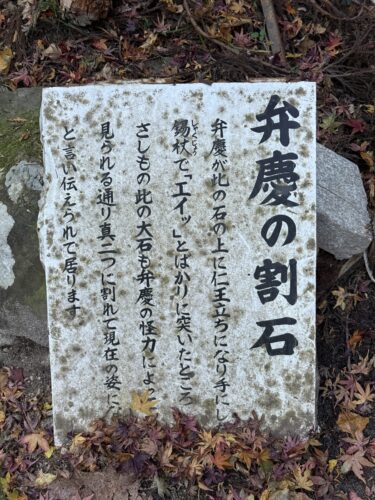 弁慶の割石
弁慶が此の石の上に仁王立ちになり手にし
しゃくじょう
錫杖で「エイッ」とばかりに突いたところ
さしもの此の大石も弁慶の怪力によ
見られる通り真二つに割れて現在の姿に
と言い伝えられて居ります